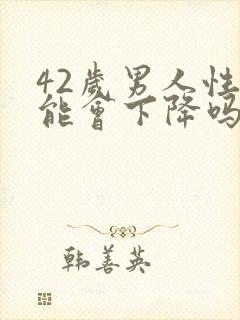 42歲男人性
能會下降吗
韩善英